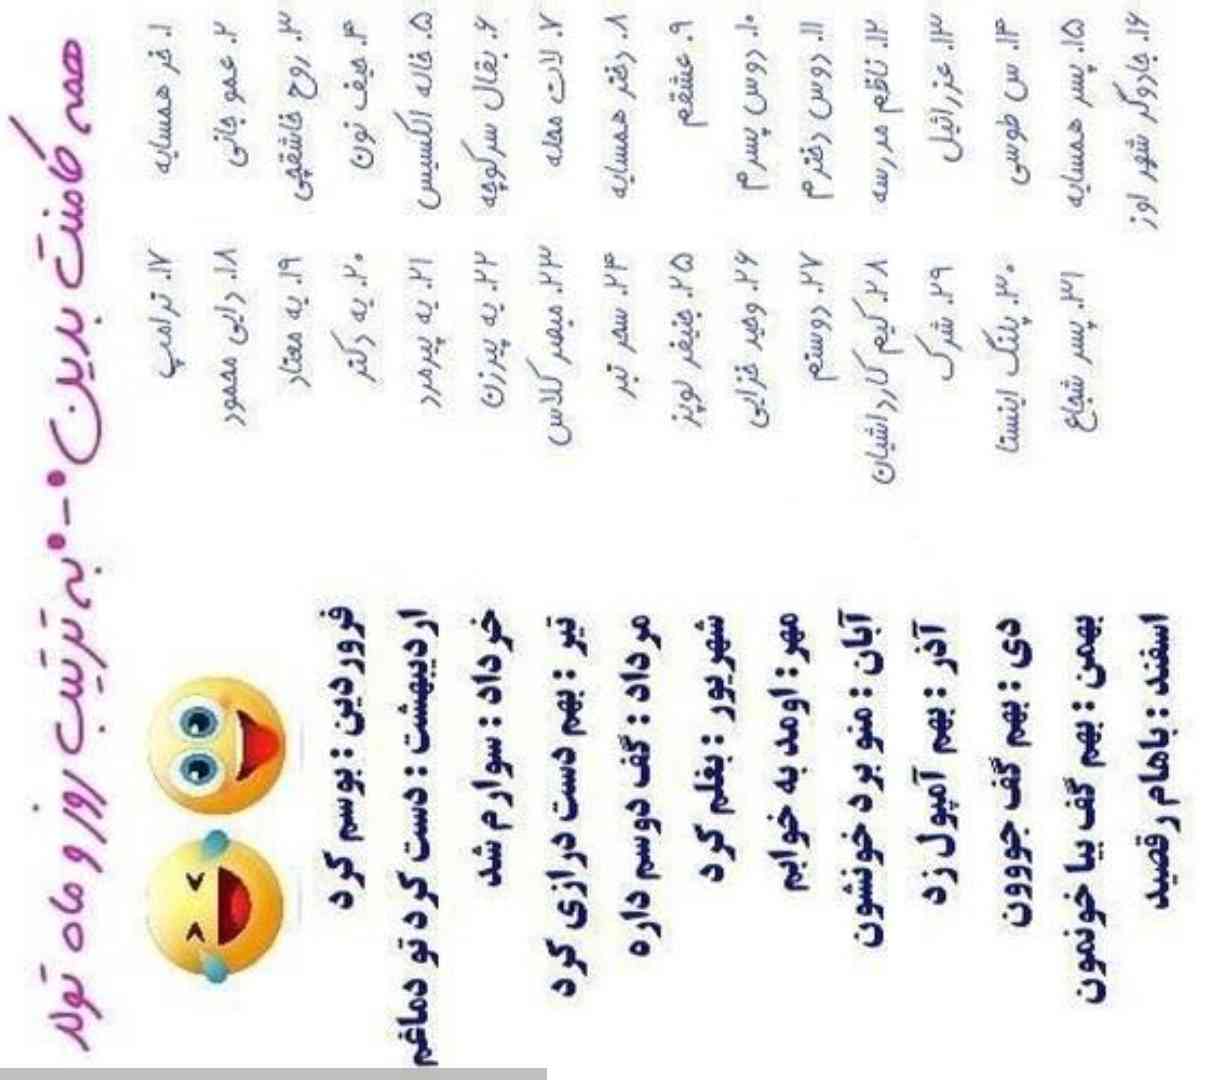 همه کامنت بدین •-• به ترتیب روز و ماه تولد
۱. خر همسایه
۲. عمو جانی
۳. روح خاشقچی
۴. هیف نون
۵. خاله الکسیس
۶. بقال سرکوچه
۷. لات محله
۸. دختر همسایه
۹. عشقم
۱۰. دوس پسرم
۱۱. دوس دخترم
۱۲. ناظم مدرسه
۱۳. عزرائیل
۱۴. س طوسی
۱۵. پسر همسایه
۱۶. جادوگر شهر اوز
۱۷. ترامپ
۱۸. دایی محمود
۱۹. یه معتاد
۲۰. یه دکتر
۲۱. یه پیرمرد
۲۲. یه پیرزن
۲۳. مبصر کلاس
۲۴. سحر تبر
۲۵. جنیفر لوپز
۲۶. وحید خزایی
۲۷. دوستم
۲۸. کیم کارداشیان
۲۹. شرک
۳۰. پلنگ اینستا
۳۱. پسر شجاع
فروردین : بوسم کرد
اردیبهشت : دست کرد تو دماغم
خرداد : سوارم شد
تیر : بهم دست درازی کرد
مرداد : گف دوسم داره
شهریور : بغلم کرد
مهر : اومد به خوابم
آبان : منو برد خونشون
آذر : بهم آمپول زد
دی : بهم گف جووون
بهمن : بهم گف بیا خونمون
اسفند : باهام رقصید